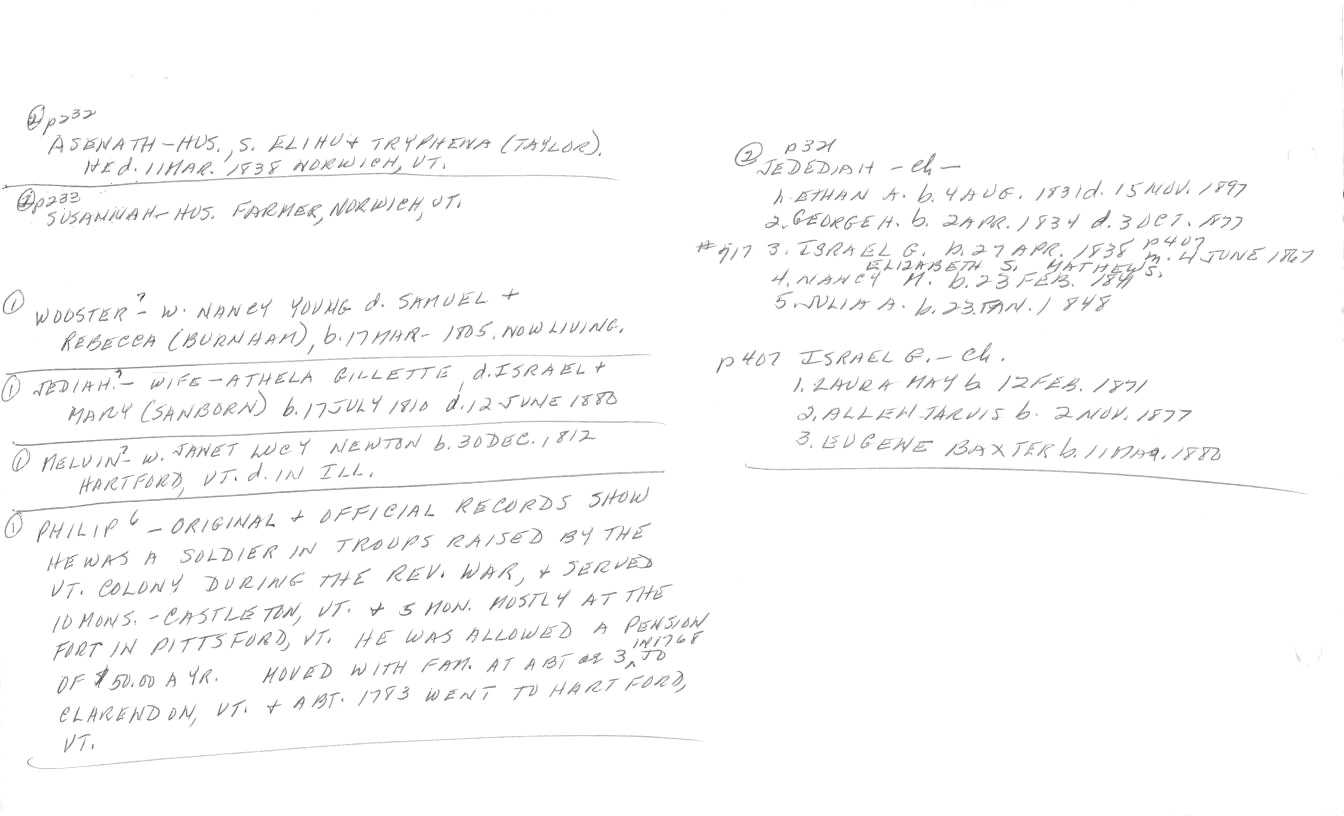 ② p232
ASENATH - HUS., S. ELIHU + TRYPHENA (TAYLOR).
HE d. 11 MAR. 1838 NORWICH, VT.
② p233
SUSANNAH - HUS. FARMER, NORWICH, VT.
① WOOSTER? - W. NANCY YOUNG d. SAMUEL +
REBECCA (BURNHAM), b. 17 MAR - 1805. NOW LIVING.
① JEDIAH.? - WIFE - ATHELA GILLETTE, d. ISRAEL +
MARY (SANBORN) b. 17 JULY 1810 d. 12 JUNE 1880
① MELVIN? - W. JANET LUCY NEWTON b. 30 DEC. 1812
HARTFORD, VT. d. IN ILL.
① PHILIP 6 - ORIGINAL + OFFICIAL RECORDS SHOW
HE WAS A SOLDIER IN TROUPS RAISED BY THE
VT. COLONY DURING THE REV. WAR, + SERVED
10 MONS. - CASTLETON, VT. + 5 MON. MOSTLY AT THE
FORT IN PITTSFORD, VT. HE WAS ALLOWED A PENSION
IN 1768
OF $50.00 A YR. MOVED WITH FAM. AT ABT 3, TO
CLARENDON, VT. + ABT. 1783 WENT TO HARTFORD,
VT.
② p321
JEDEDIAH - Ch -
1. ETHAN A. b. 4 AUG. 1831 d. 15 NOV. 1897
2. GEORGE H. b. 2 APR. 1834 d. 3 OCT. 1877
#917 3. ISRAEL G. b. 27 APR. 1838 p407 m. 4 JUNE 1867
ELIZABETH S. MATHEWS.
4. NANCY M. b. 23 FEB. 1841
5. JULIA A. b. 23. JAN. 1848
p407 ISRAEL G. - Ch.
1. LAURA MAY b 12 FEB. 1871
2. ALLEN JARVIS b. 2 NOV. 1877
3. EUGENE BAXTER b. 11 MAR. 1880